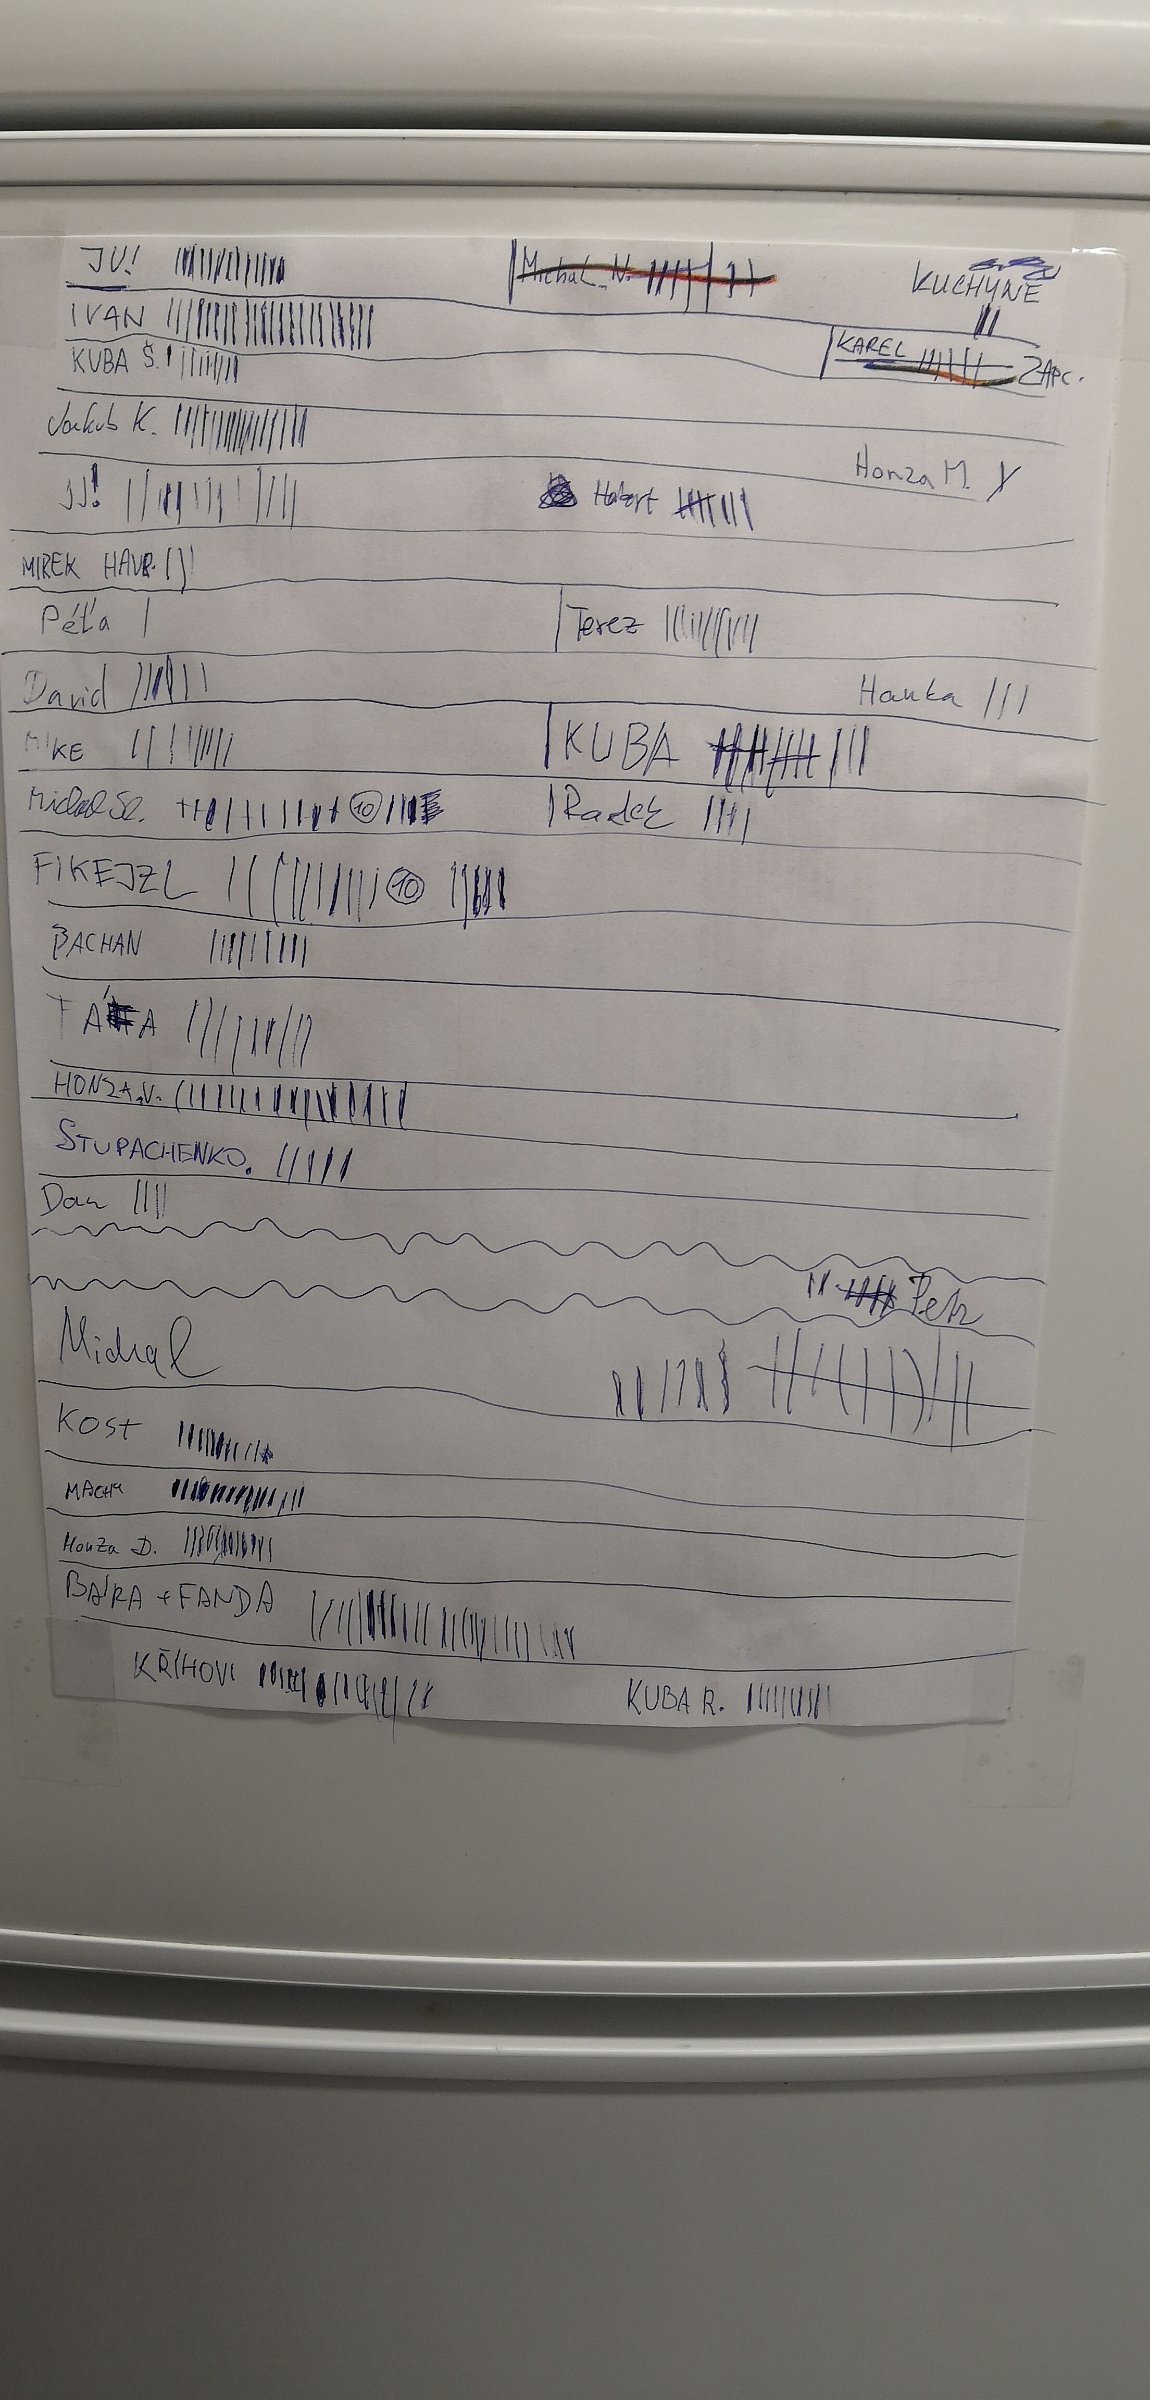 JV!
Michal N.
KUCHYNE
IVAN
KAREL ZAPC.
KUBA Š.
Jakub K.
Honza M.
JJ!
MIREK HAVR.
Péťa
Terez
David
Hanka
MIKE
KUBA
Michal Sl. 10
Radek
FIKEJZL 10
BACHAN
HONZA V.
STUPACHENKO.
Dan
Petr
Michal
KOST
MACHA
Honza D.
BÁRA + FANDA
KŘÍHOVI
KUBA R.